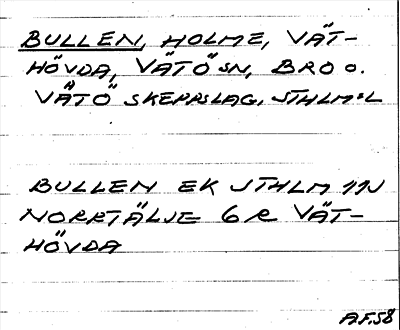 BULLEN, HOLME, VÄT-
HÖVDA, VÄTÖ SN, BRO O.
VÄTÖ SKEPPSLAG, STHLM:L
BULLEN EK STHLM 11J
NORRTÄLJE 6 R VÄT-
HÖVDA
A.F.58